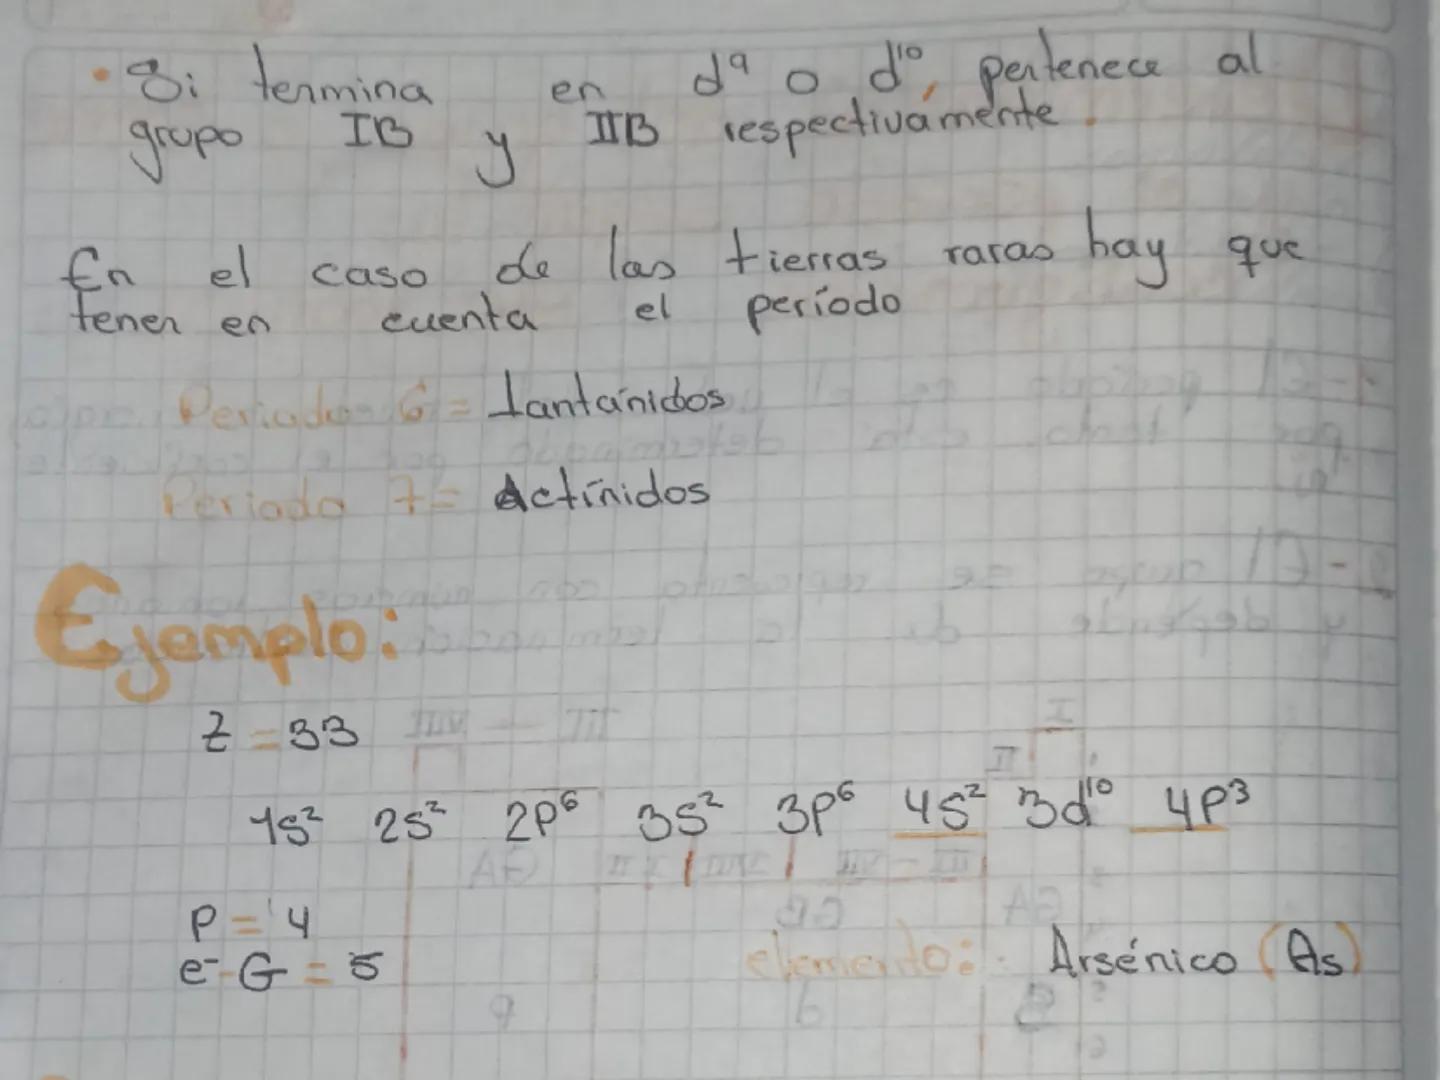 • Si termina en d⁹ o d¹⁰, pertenece al
grupo IB y IIB respectivamente.
En el caso de las tierras raras hay que
tener en cuenta el período
Periodo 6 = Lantánidos
Periodo 7 = Actínidos
Ejemplo:
Z = 33
1s² 2s² 2p⁶ 3s² 3p⁶ 4s² 3d¹⁰ 4p³
P = 4
e⁻ G = 5
elemento: Arsénico (As)